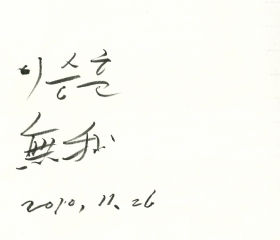 이승훈
無我
2010. 11. 26